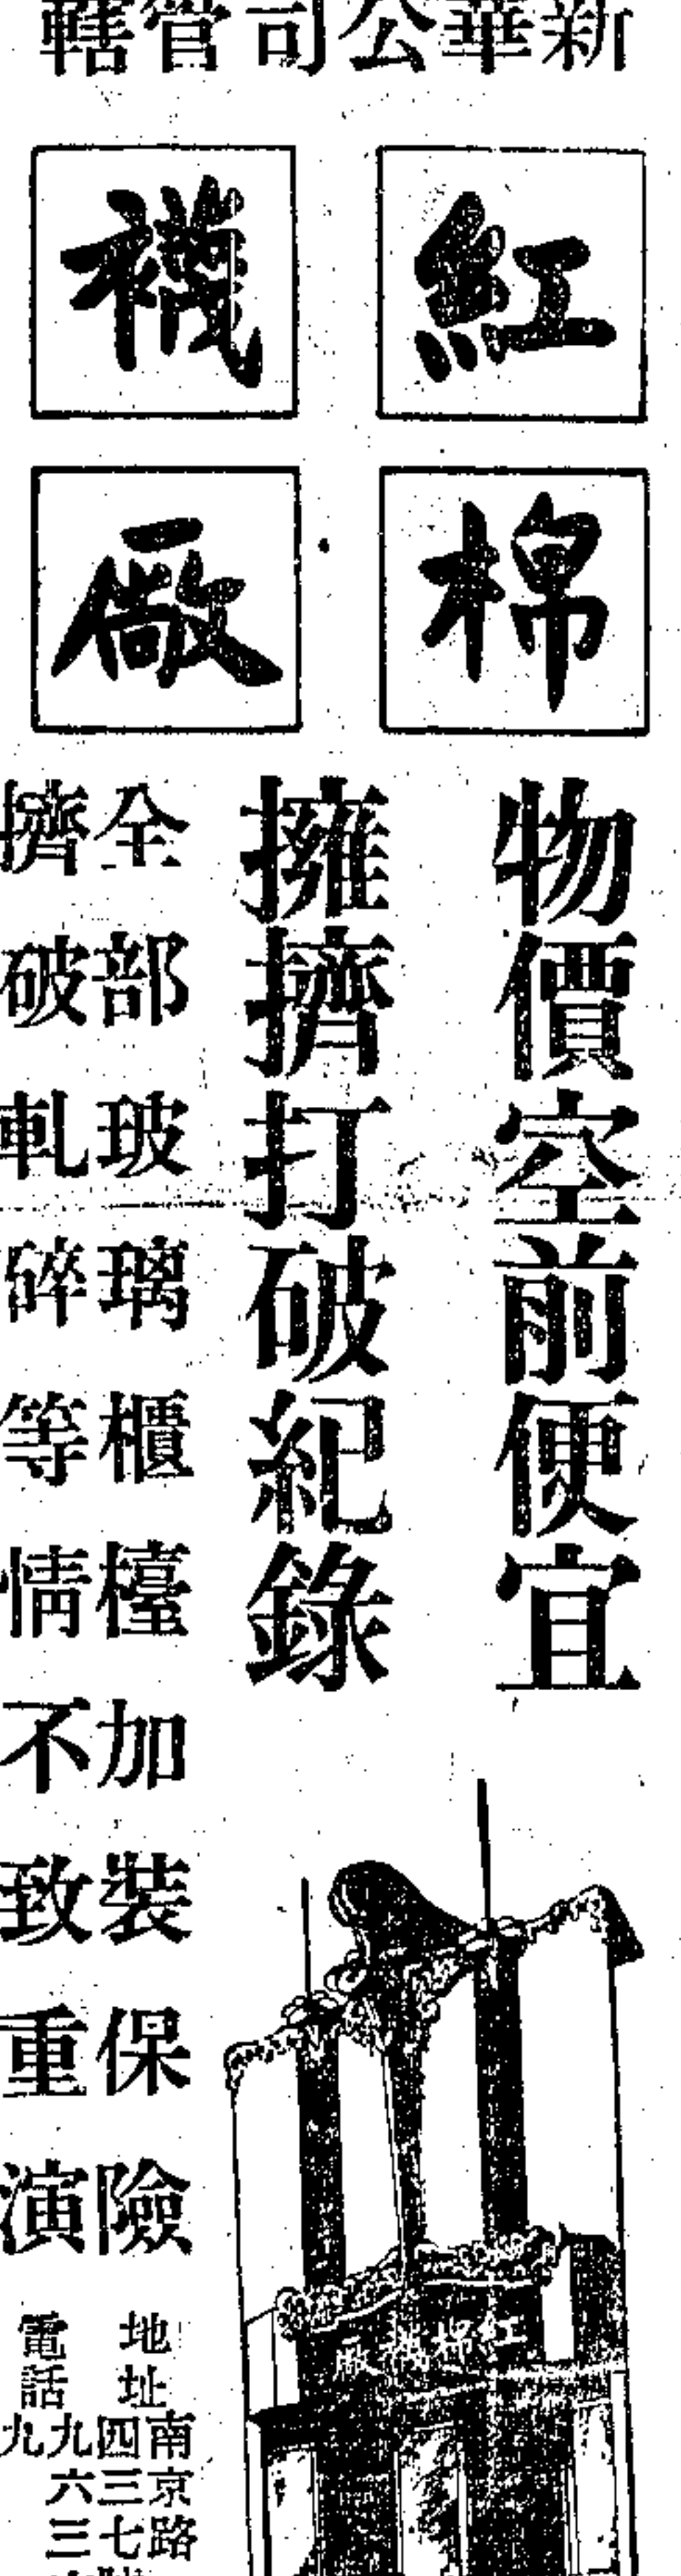 新華公司管轄
紅棉
襪廠
物價空前便宜
擁擠打破紀錄
全部玻璃櫃檯加裝保險
擠破軋碎等情不致重演
地址
南京路
四三七
電話
九六三
九